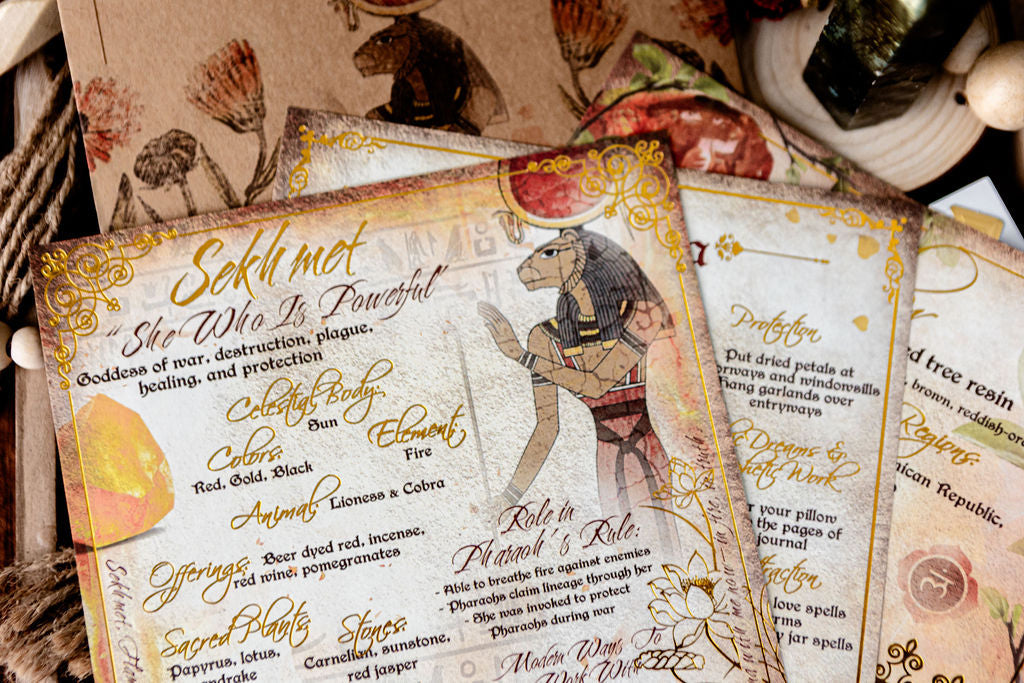 Sekhmet
"She Who Is Powerful"
Goddess of war, destruction, plague,
healing, and protection
Celestial Body:
Sun
Colors:
Red, Gold, Black
Element:
Fire
Animal: Lioness & Cobra
Offerings: Beer dyed red, incense,
red wine, pomegranates
Sacred Plants:
Papyrus, lotus,
Stones:
Carnelian, sunstone,
red jasper
Role in
Pharaoh's Rule:
- Able to breathe fire against enemies
- Pharaohs claim lineage through her
- She was invoked to protect
Pharaohs during war
Modern Ways To
Work With
Sekhmet,
Protection
Put dried petals at
and windowsills
hang garlands over
entryways
Dreams &
Work
your pillow
the pages of
journal
love spells
jar spells
tree resin
brown,
Regions:
Republic,